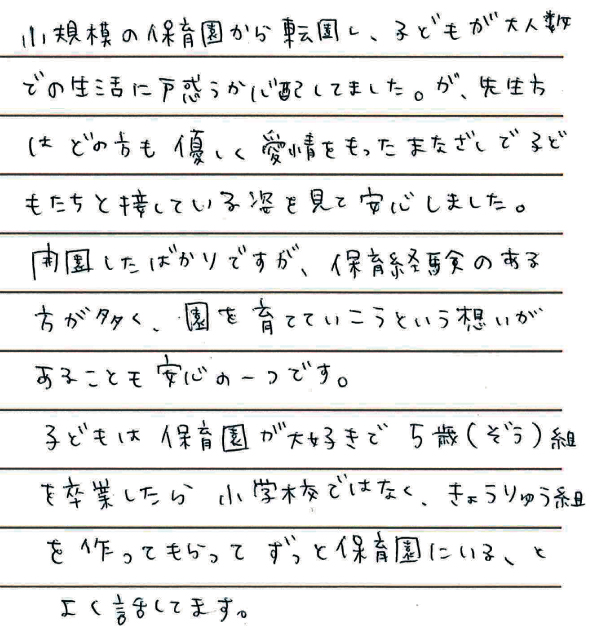 小規模の保育園から転園し、子どもが大人数
での生活に戸惑うか心配してました。が、先生方
はどの方も優しく愛情をもったまなざしで子ど
もたちと接している姿を見て安心しました。
開園したばかりですが、保育経験のある
方が多く、園を育てていこうという想いが
あることも安心の一つです。
子どもは保育園が大好きで5歳(ぞう)組
を卒業したら小学校ではなく、きょうりゅう組
を作ってもらってずっと保育園にいる、と
よく話してます。